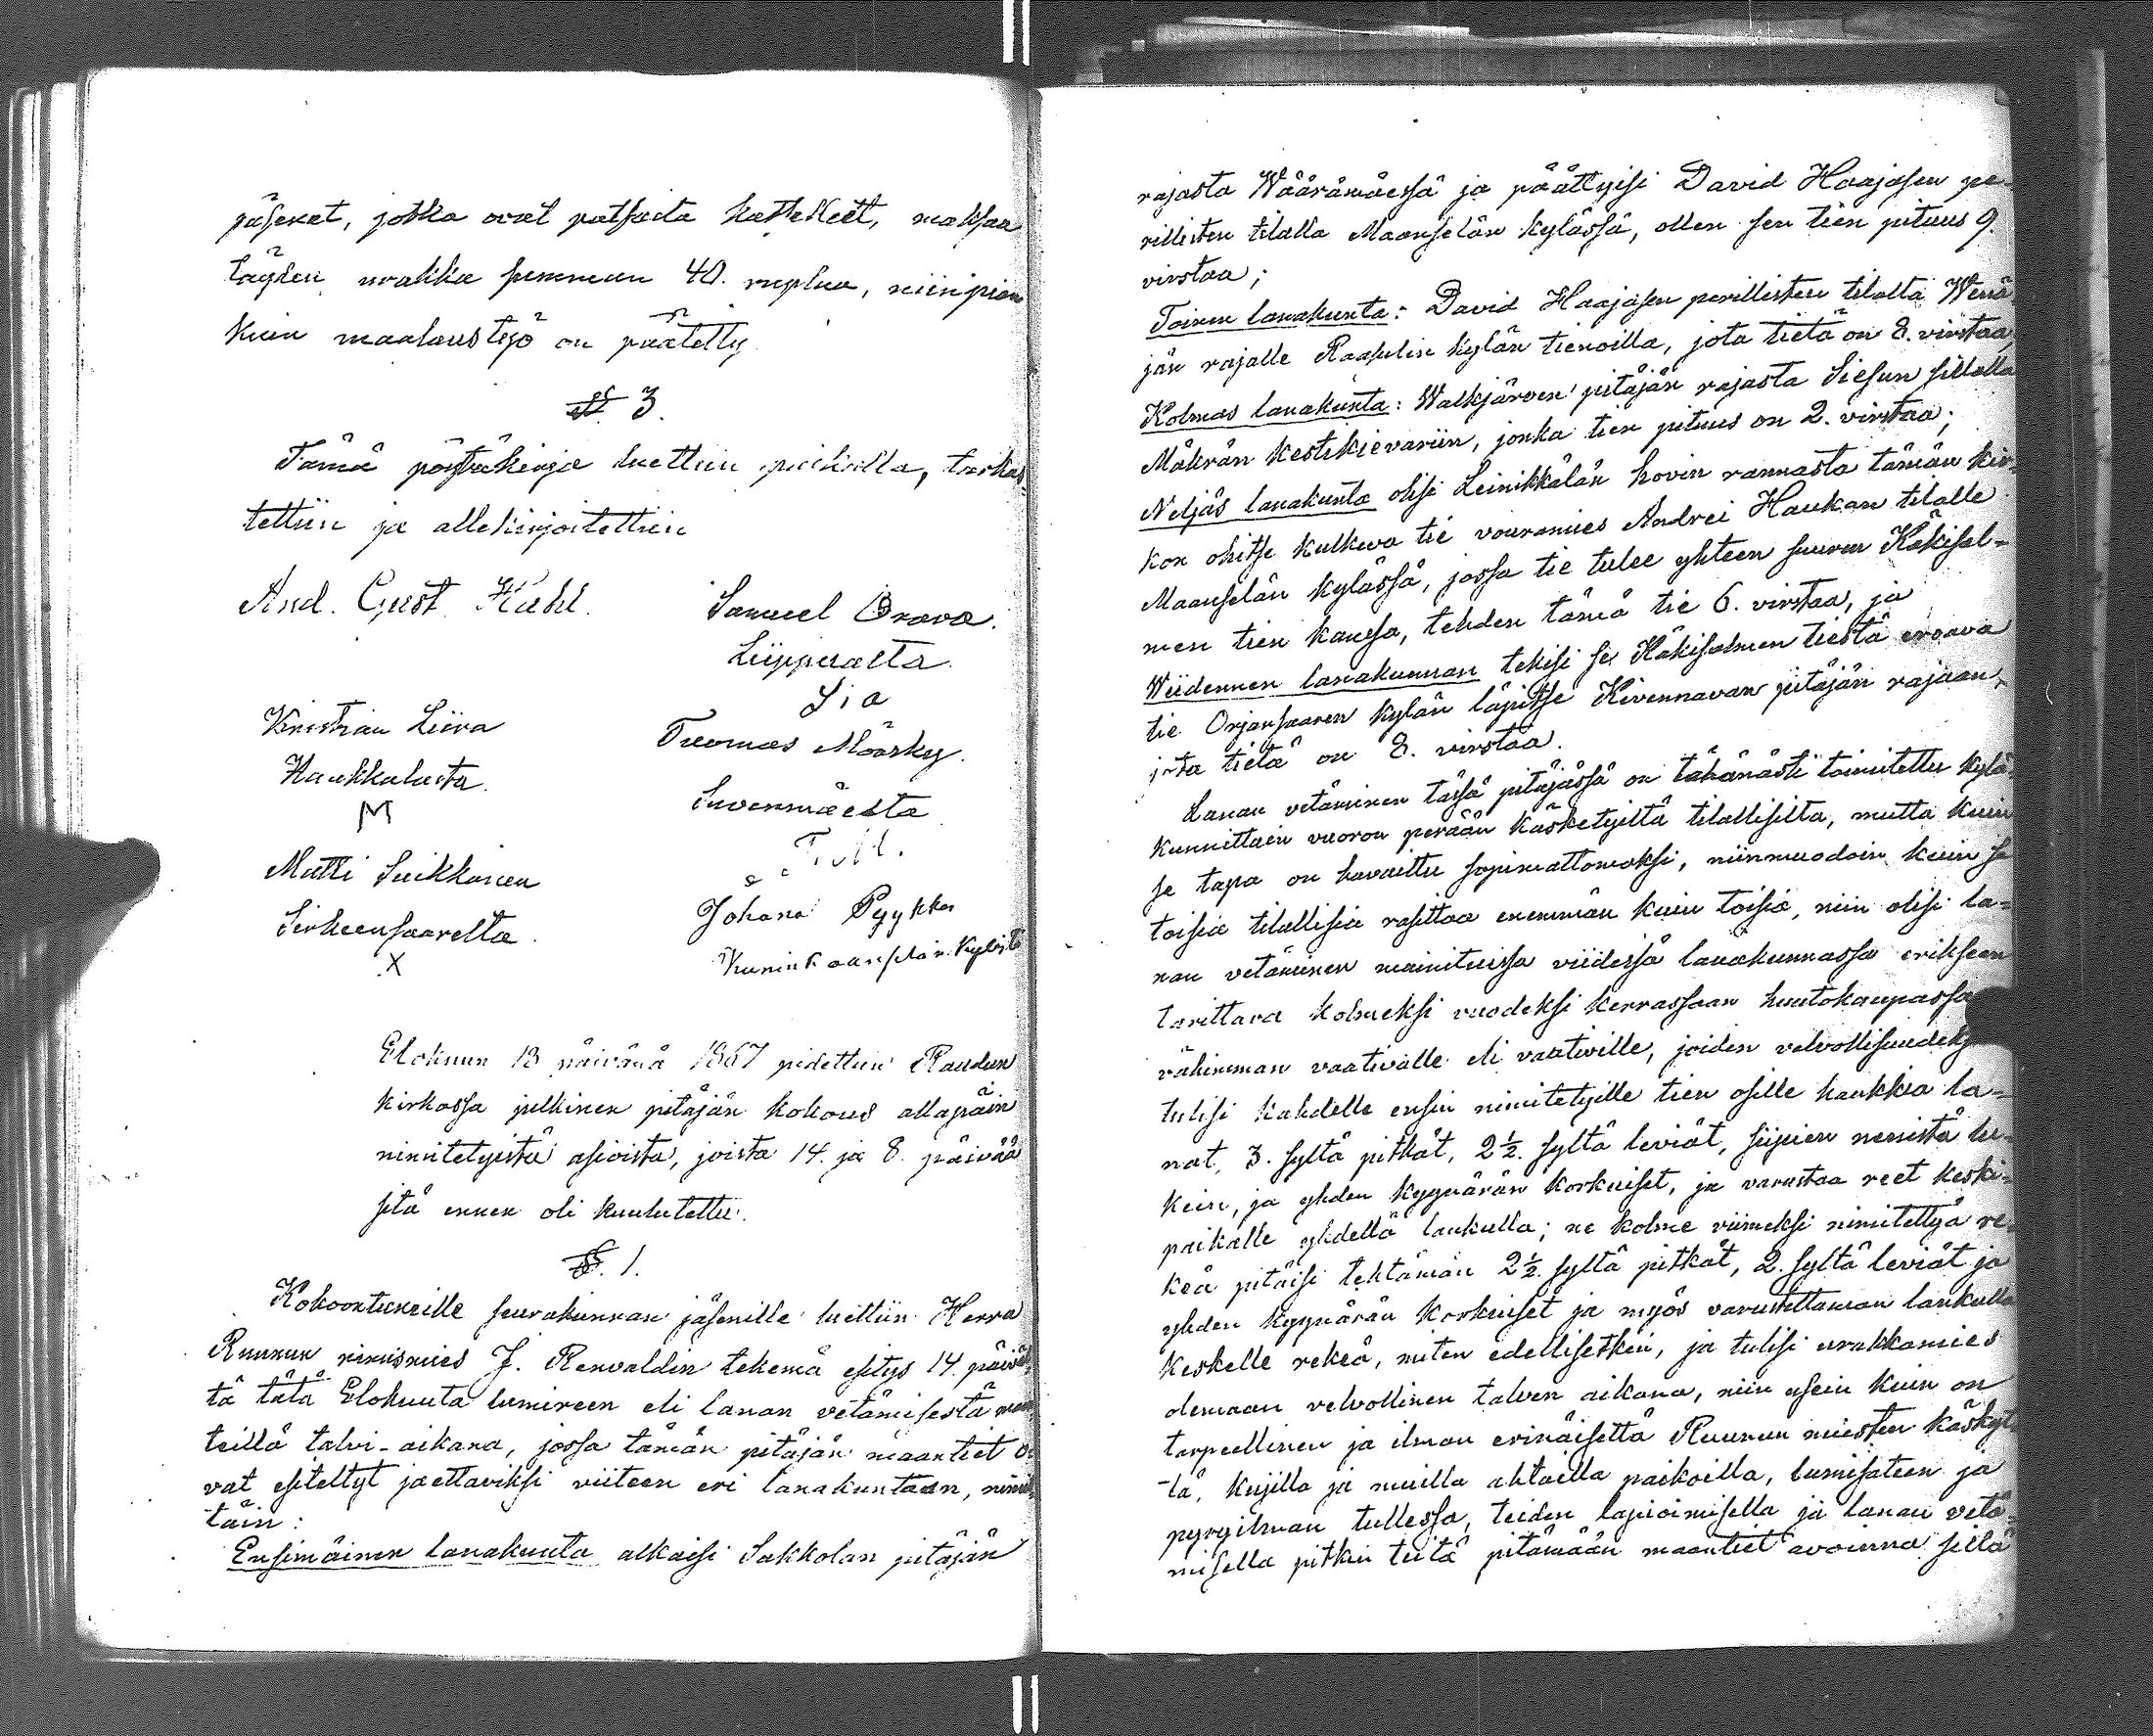 jäsenet, jotka ovat patsaita katselleet, maksaa
täyden urakka summan 40. ruplaa, niinpian
kuin maalaustyö on päätetty
§ 3.
Tämä pöytäkirja luettiin paikalla, tarkas-
tettiin ja allekirjoitettiin
And. Gust. Kuhl.
Samuel Orava.
Liippualta.
Sia
Kristian Liira
Haukkalasta.
M
Tuomas Määrky.
Suvenmäelta
Matti Suikkanen
Sirkeensaarelta.
X
Johana Pyykkö
Kuninkaanselän kylästä
Elokuun 18 päivänä 1867 pidettiin Raudun
kirkossa julkinen pitäjän kokous allapäin
nimitetyistä asioista, joista 14. ja 8. päivää
sitä ennen oli kuulutettu.
§. 1.
Kokoontuneille seurakunnan jäsenille luettiin Herra
Ruunun nimismies J. Renvaldin tekemä esitys 14 päivä-
tä tätä Elokuuta lumireen eli lanan vetämisestä maan
teillä talvi-aikana, jossa tämän pitäjän maantiet o-
vat esitellyt jaettaviksi viiteen eri lanakuntaan, nimit-
täin:
Ensimäinen lanakunta alkaisi Sakkolan pitäjän
rajasta Wääramäessä ja päättyisi David Haajasen pe-
rillisten tilalla Maanselän kylässä, ollen sen tien pituus 9.
virstaa;
Toinen lanakunta: David Haajasen perillisten tilalta Wenä
jän rajalle Raasulin kylän tienoilla, jota tietä on 8. virstaa;
Kolmas lanakunta: Walkjärven pitäjän rajasta Siesun sillalla
Mäkrän kestikievariin, jonka tien pituus on 2. virstaa;
Neljäs lanakunta olisi Leinikkälän hovin rannasta tämän kir-
kon ohitse kulkeva tie vouramies Andrei Haukan tilalle
Maanselän kylässä, jossa tie tulee yhteen suuren Käkisal-
men tien kanssa, tehden tämä tie 6. virstaa, ja
Wiidennen lanakunnan tekisi se Käkisalmen tiestä eroava
tie Orjansaaren kylän läpitse Kivennavan pitäjän rajaan,
jota tietä on 8. virstaa.
Lanan vetäminen tässä pitäjässä on tähänasti toimitettu kylä-
kunnittain vuoron perään käsketyiltä tilallisilta, mutta kuin
se tapa on havaittu sopimattomaksi, niinmuodoin kuin se
toisia tilallisia rasittaa enemmän kuin toisia, niin olisi la-
nan vetäminen mainituissa viidessä lanakunnassa erikseen
tarittava kolmeksi vuodeksi kerrassaan huutokaupassa
vähimman vaativalle eli vaativille, joiden velvollisuudeksi
tulisi kahdelle ensin nimitetyille tien osille hankkia la-
nat, 3. syltä pitkät, 2½. syltä leviät, siipien nenistä lu-
kein, ja yhden kyynärän korkuiset, ja varustaa reet keski-
paikalle yhdellä laukulla; ne kolme viimeksi nimitettyä re-
keä pitäisi tehtämän 2½. syltä pitkät, 2. syltä leviät ja
yhden kyynärän korkuiset ja myös varustettaman laukulla
keskelle rekeä, niten edellisetkin, ja tulisi urakkamies
olemaan velvollinen talven aikana, niin usein kuin on
tarpeellinen ja ilman erinäisettä Ruunun miesten käskyt-
tä, kujilla ja muilla ahtailla paikoilla, lumisateen ja
pyryilman tullessa, teiden lapioimisella ja lanan vetä-
misella pitkin teitä pitämään maantiet avoinna sillä